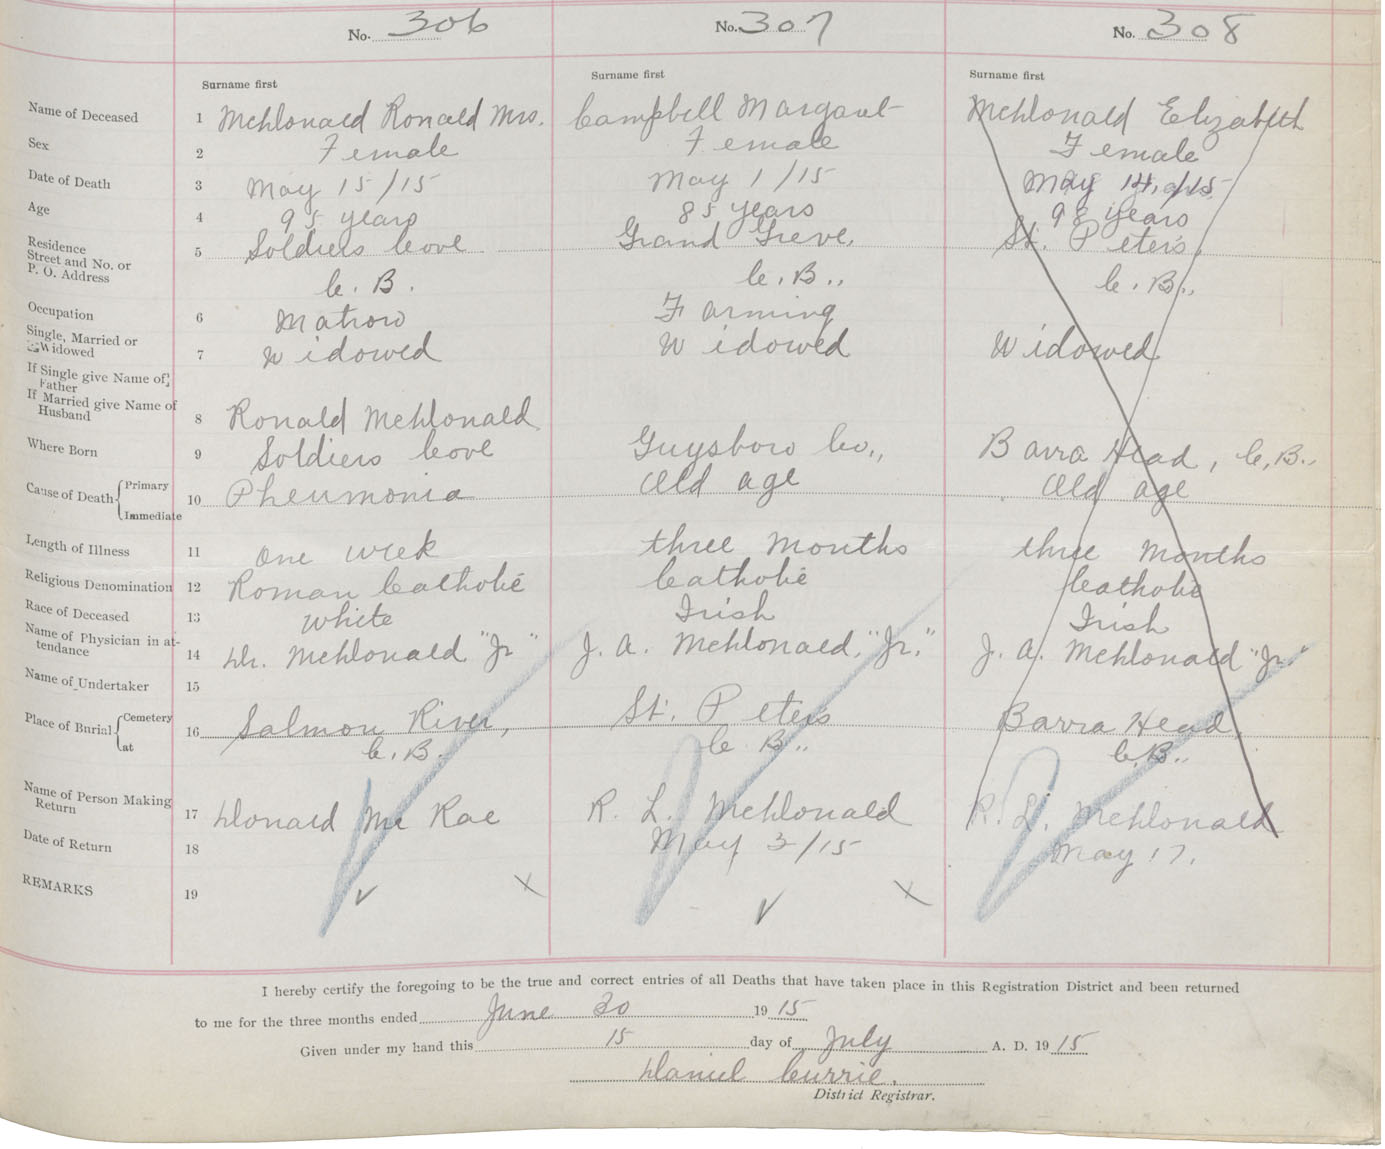 No. 306
No. 307
No. 308
Surname first
Surname first
Surname first
Name of Deceased 1 McDonald Ronald Mrs. Campbell Margaret McDonald Elizabeth
Sex 2 Female Female Female
Date of Death 3 May 15/15 May 1/15 May 14, /15
Age 4 95 years 85 years 98 years
Residence 5 Soldiers Cove Grand Greve, St. Peters,
Street and No. or
P. O. Address C. B. C. B., C. B.,
Occupation 6 Matron Farming
Single, Married or
Widowed 7 Widowed Widowed Widowed
If Single give Name of
Father
If Married give Name of
Husband 8 Ronald McDonald
Where Born 9 Soldiers Cove Guysboro Co., Barra Head, C. B.,
Cause of Death { Primary 10 Pneumonia Old age Old age
Immediate
Length of Illness 11 One week three months three months
Religious Denomination 12 Roman Catholic Catholic Catholic
Race of Deceased 13 White Irish Irish
Name of Physician in at-
tendance 14 Dr. McDonald "Jr" J. A. McDonald, "Jr." J. A. McDonald "Jr."
Name of Undertaker 15
Place of Burial { Cemetery 16 Salmon River, St. Peters Barra Head,
at C. B. C. B., C. B.,
Name of Person Making
Return 17 Donald Mc Rae R. L. McDonald R. L. McDonald
Date of Return 18 May 3/15 May 17,
REMARKS 19
I hereby certify the foregoing to be the true and correct entries of all Deaths that have taken place in this Registration District and been returned
to me for the three months ended June 30 1915
Given under my hand this 15 day of July A. D. 1915
Daniel Currie.
District Registrar.